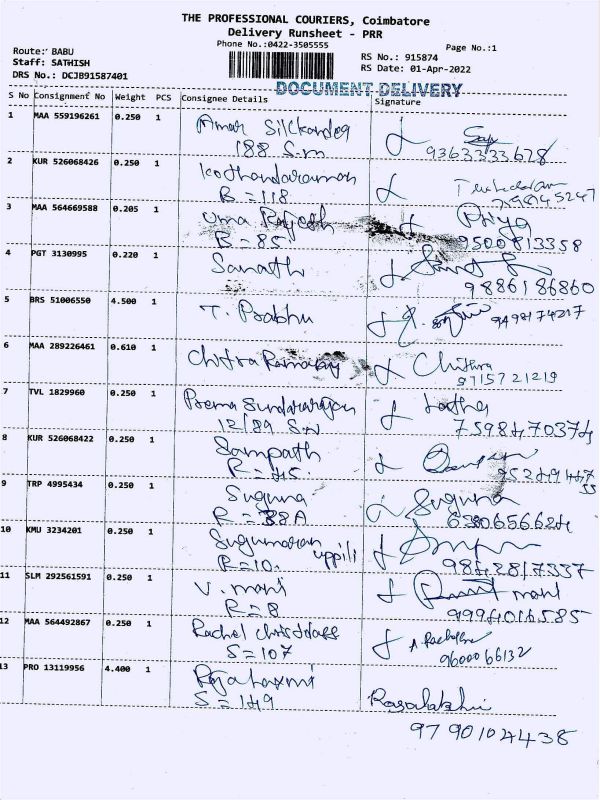 THE PROFESSIONAL COURIERS, Coimbatore
Delivery Runsheet - PRR
Phone No.:0422-3505555
Page No.:1
Route: BABU
RS No.: 915874
Staff: SATHISH
RS Date: 01-Apr-2022
DRS No.: DCJB91587401
DOCUMENT DELIVERY
S No Consignment No Weight PCS Consignee Details Signature
1 MAA 559196261 0.250 1 Amar
188 S.m 9363333678
2 KUR 526068426 0.250 1 Kothandaraman
B = 118
3 MAA 564669588 0.205 1 Uma Rajesh Priya
B = 85 9500813358
4 PGT 3130995 0.220 1 Sanath
9886186860
5 BRS 51006550 4.500 1 T. Prabhu
9498174217
6 MAA 289226461 0.610 1 Chitra Chithra
9715721219
7 TVL 1829960 0.250 1 Prema Sundararajan Latha
12/89 S.N 7598470374
8 KUR 526068422 0.250 1 Sampath
R = 45
9 TRP 4995434 0.250 1 Suguna Suguna
R = 38A 6380656624
10 KMU 3234201 0.250 1 Sugumaran uppili
R = 10. 9842817337
11 SLM 292561591 0.250 1 V. mani mani
R = 8 9994016585
12 MAA 564492867 0.250 1 Rachel Christdass
S = 107 9600066132
13 PRO 13119956 4.400 1 Rajalaxmi Rasalakshi
S = 149
9790102438